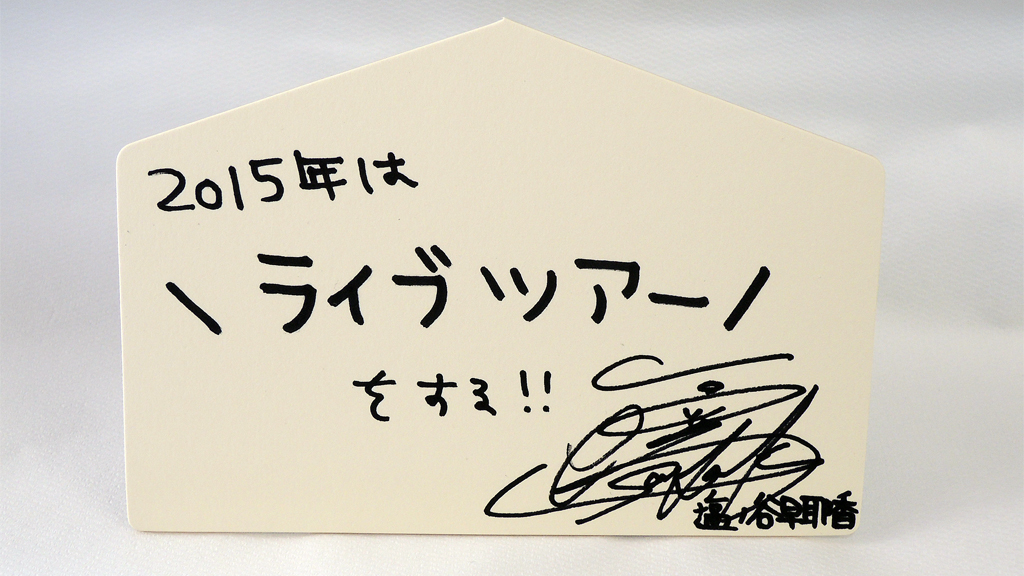 2015年は
\ ライブツアー /
をする!!
塩ノ谷早耶香